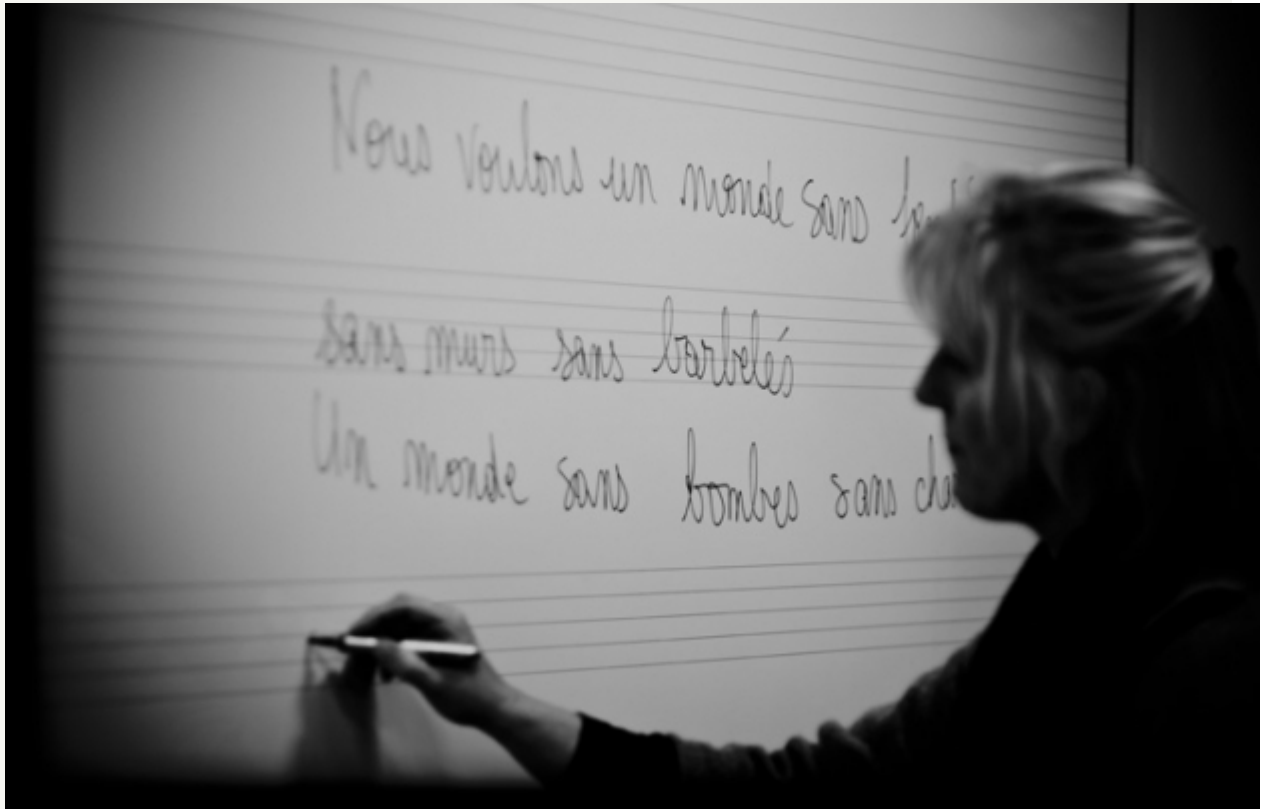 Nous voulons un monde sans
sans murs sans barbelés
Un monde sans bombes sans